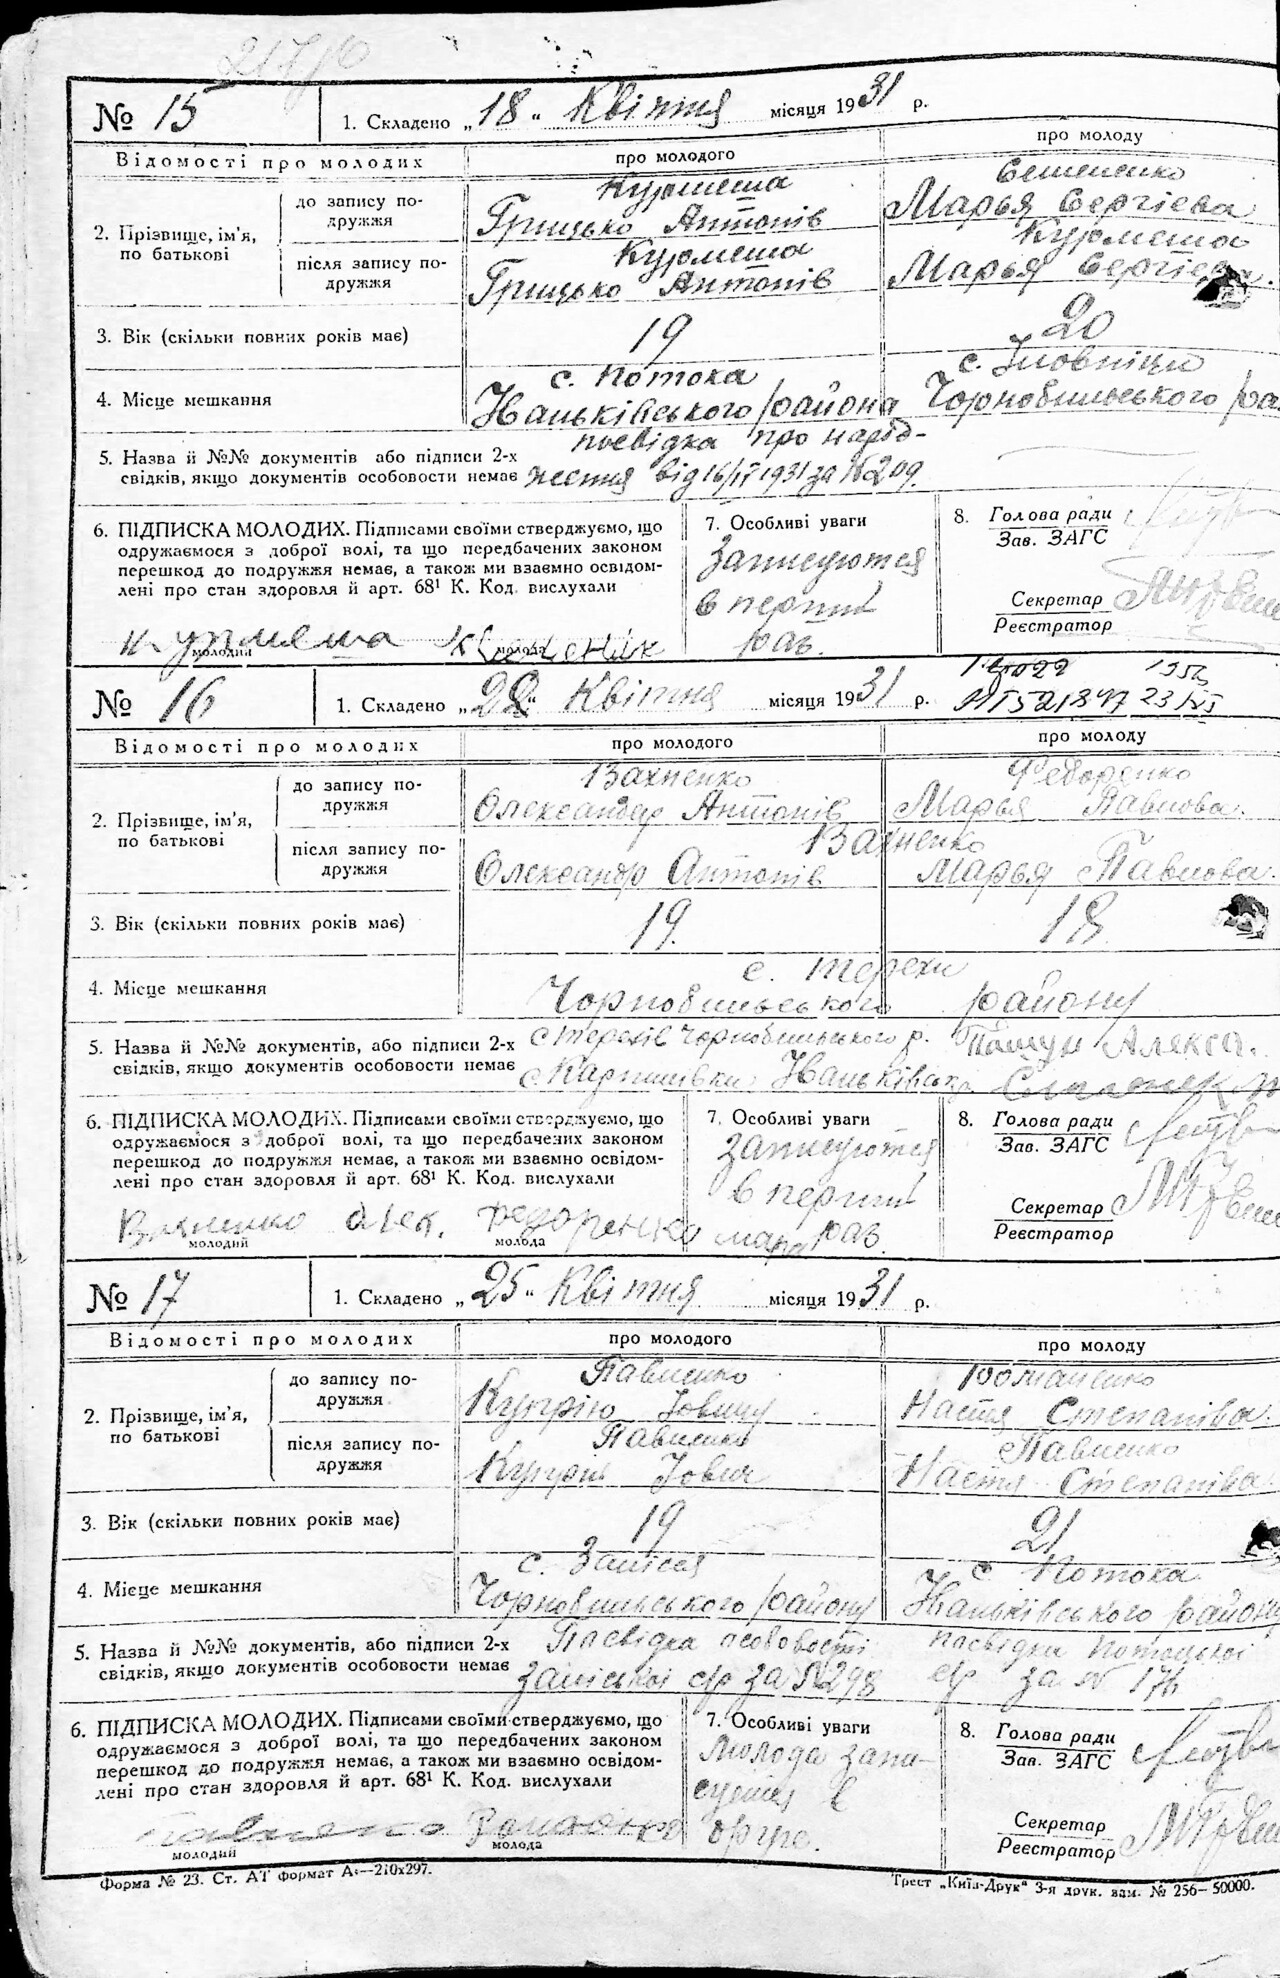 № 15
1. Складено „18" Квітня місяця 1931 р.
Відомості про молодих
про молодого
про молоду
2. Прізвище, ім'я, по батькові
до запису подружжя
Курмеша
Грицько Антонів
Семененко
Марья Сергіева
після запису подружжя
Курмеша
Грицько Антонів
Курмеша
Марья Сергіева.
3. Вік (скільки повних років має)
19
20
4. Місце мешкання
с. Потока
Іваньківського района
с.
Чорнобильського
5. Назва й №№ документів або підписи 2-х
свідків, якщо документів особовости немає
посвідка про народ-
ження від 16/IV 1931 за №209.
6. ПІДПИСКА МОЛОДИХ. Підписами своїми стверджуємо, що
одружаємося з доброї волі, та що передбачених законом
перешкод до подружжя немає, а також ми взаємно освідом-
лені про стан здоровля й арт. 68¹ К. Код. вислухали
Курмеша
молодий
молода
7. Особливі уваги
Записуются
в перший
раз.
8. Голова ради
Зав. ЗАГС
Секретар
Реєстратор
№ 16
1. Складено „22" Квітня місяця 1931 р.
Відомості про молодих
про молодого
про молоду
2. Прізвище, ім'я,
по батькові
до запису по-
дружжя
Вахненко
Олександр Антонів
Федоренко
Марья Павлова.
після запису по-
дружжя
Вахненко
Олександр Антонів
Марья Павлова.
3. Вік (скільки повних років має)
19.
18
4. Місце мешкання
с. Терехи
Чорнобильського району
5. Назва й №№ документів, або підписи 2-х
свідків, якщо документів особовости немає
с Терехів Чорнобильського р.
с Карпилівки Іваньківськ
6. ПІДПИСКА МОЛОДИХ. Підписами своїми стверджуємо, що
одружаємося з доброї волі, та що передбачених законом
перешкод до подружжя немає, а також ми взаємно освідом-
лені про стан здоровля й арт. 68¹ К. Код. вислухали
Вахненко Олек. Федоренко мара
молодий
молода
7. Особливі уваги
Записуются
в перший
раз.
8. Голова ради
Зав. ЗАГС
Секретар
Реєстратор
№ 17
1. Складено „25" Квітня місяця 1931 р.
Відомості про молодих
про молодого
про молоду
2. Прізвище, ім'я,
по батькові
до запису по-
дружжя
Павленко
Романенко
Настя Степанівна.
після запису по-
дружжя
Павленко
Павленко
Настя Степанівна
3. Вік (скільки повних років має)
19
21
4. Місце мешкання
с. Залісся
Чорнобильського району
с. Потока
Іваньківського району
5. Назва й №№ документів, або підписи 2-х
свідків, якщо документів особовости немає
Посвідка особовості
заліської с/р за №298
посвідка Потоцької
с/р за №176
6. ПІДПИСКА МОЛОДИХ. Підписами своїми стверджуємо, що
одружаємося з доброї волі, та що передбачених законом
перешкод до подружжя немає, а також ми взаємно освідом-
лені про стан здоровля й арт. 68¹ К. Код. вислухали
молодий
молода
7. Особливі уваги
Молода запи-
8. Голова ради
Зав. ЗАГС
Секретар
Реєстратор
Форма № 23. Ст. АТ формат А₄—210x297.
Трест „Київ-Друк" 3-я друк. зам. № 256— 50000.